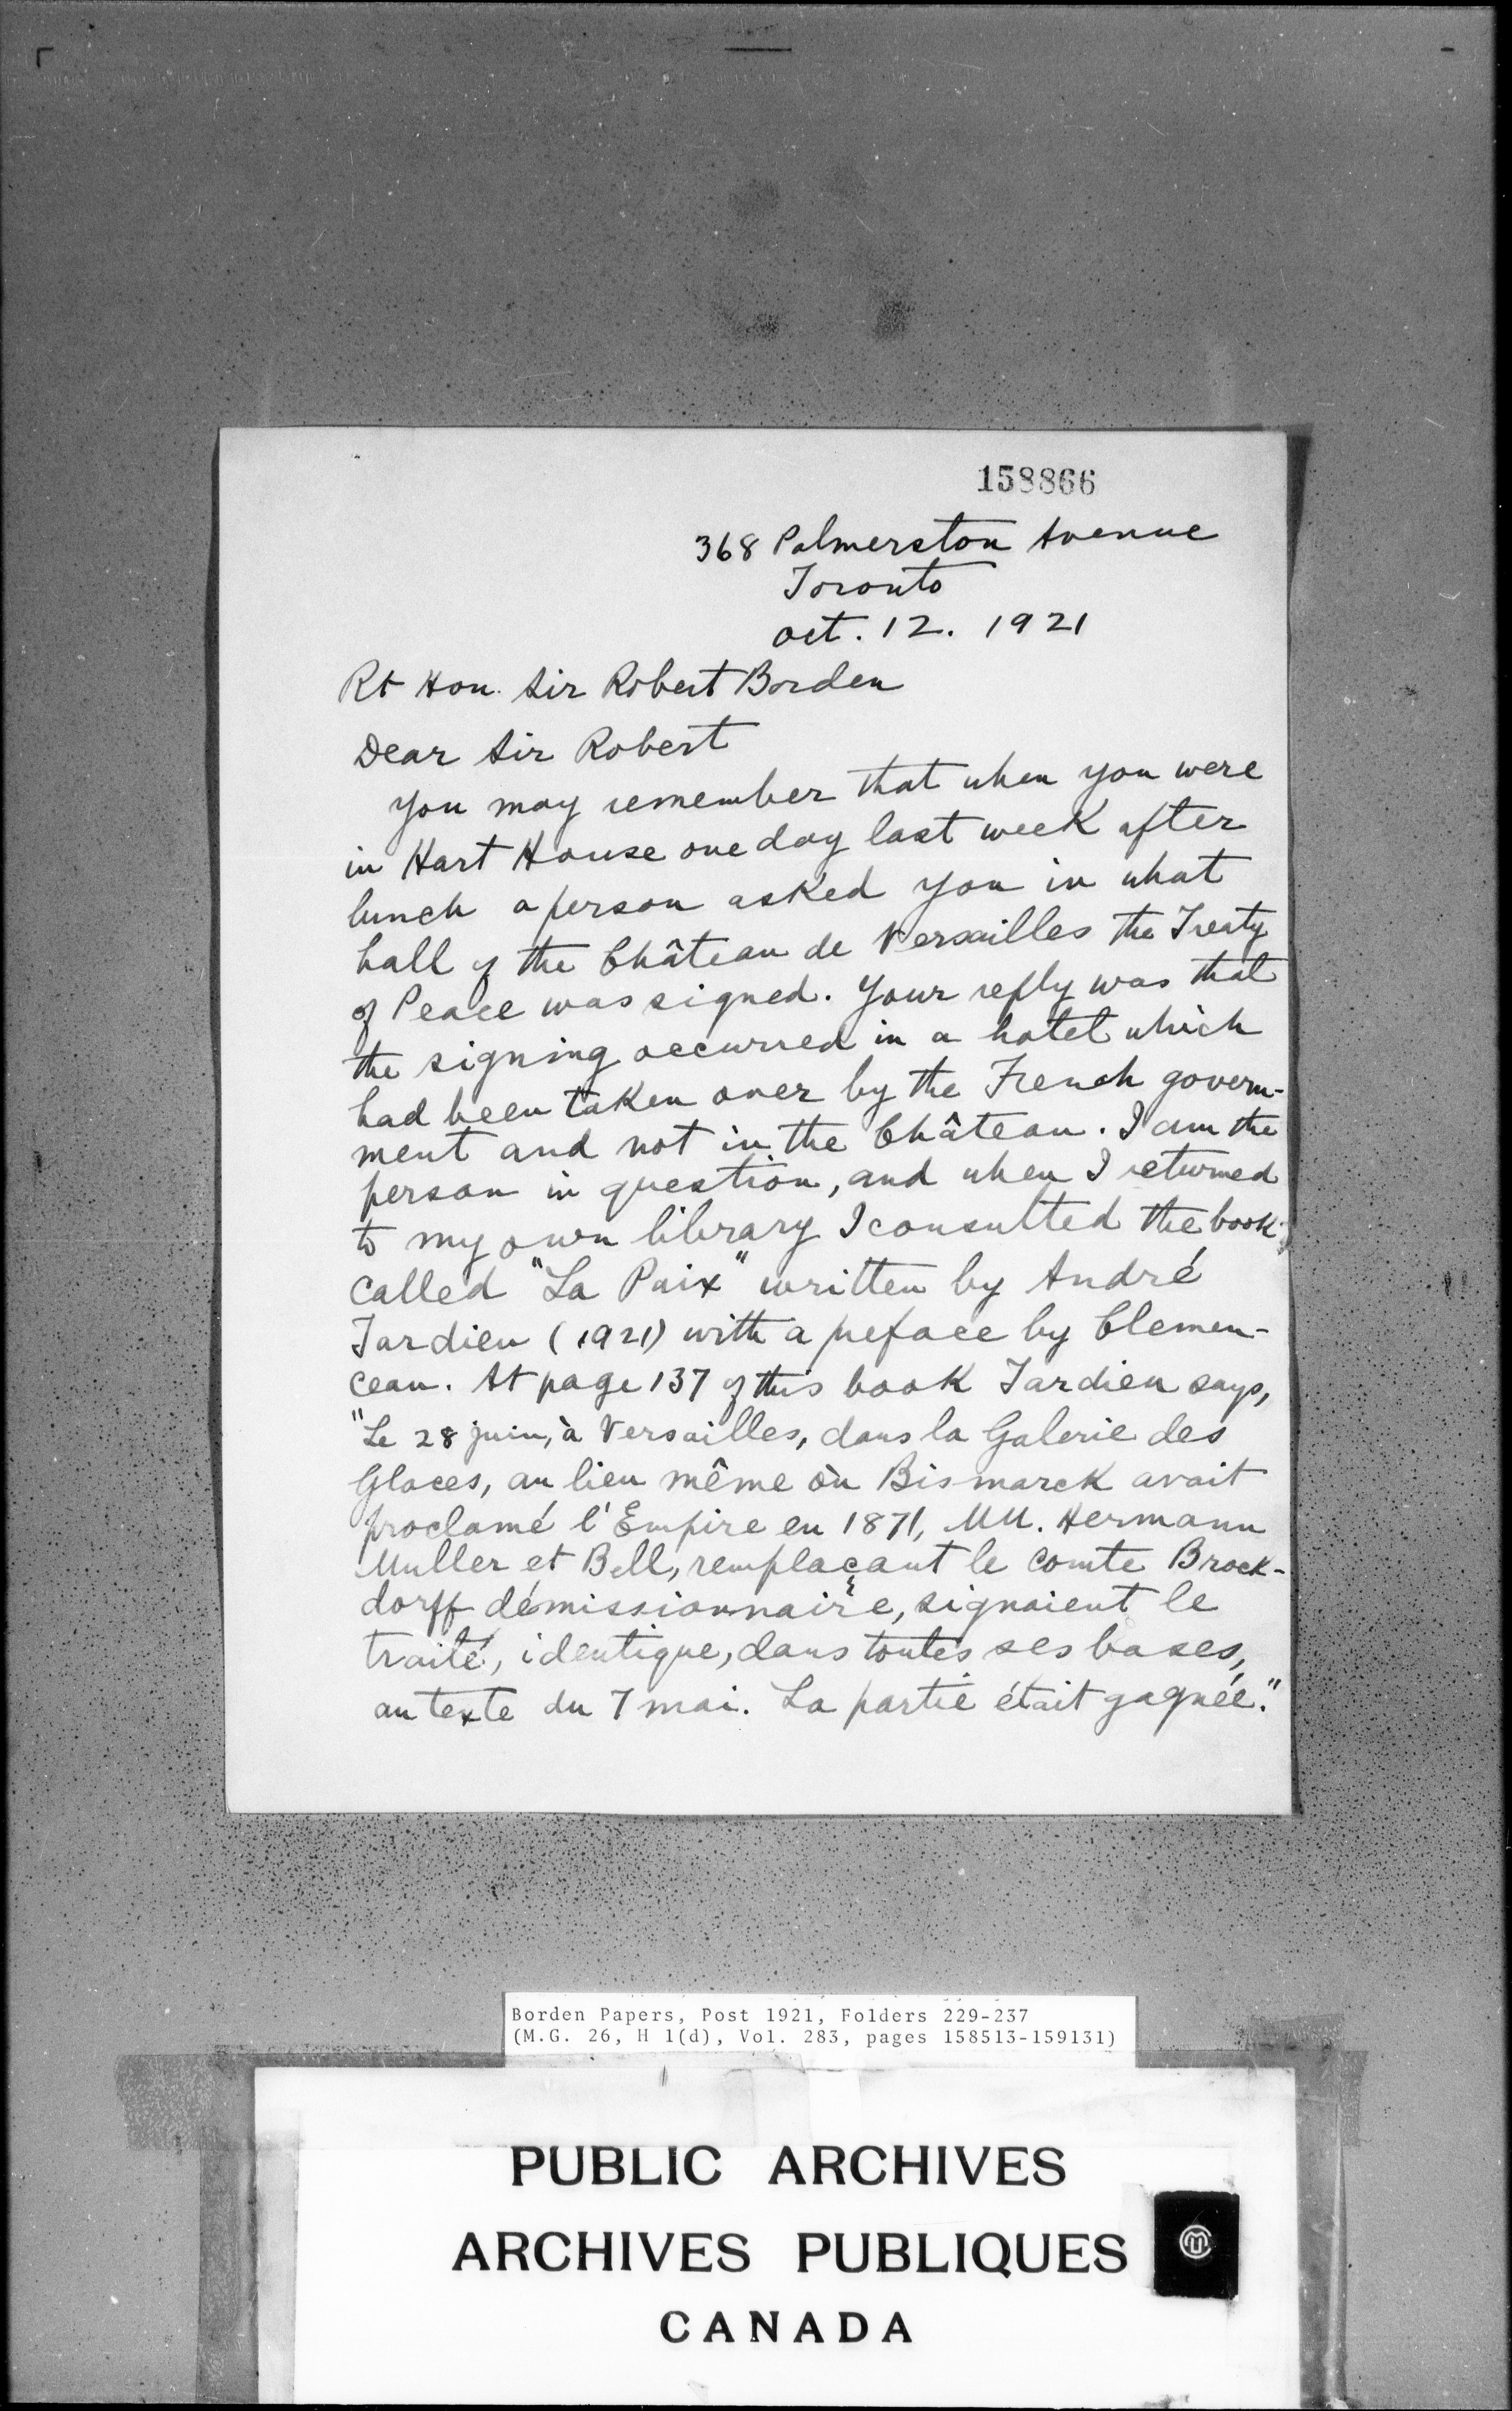 158866
368 Palmerston Avenue
Toronto
Oct. 12. 1921
Rt Hon. Sir Robert Borden
Dear Sir Robert
You may remember that when you were
in Hart House one day last week after
lunch a person asked you in what
hall of the Château de Versailles the Treaty
of Peace was signed. Your reply was that
the signing occurred in a hotel which
had been taken over by the French govern-
ment and not in the Château. I am the
person in question, and when I returned
to my own library I consulted the book
called "La Paix" written by André
Tardieu (1921) with a preface by Clemen-
ceau. At page 137 of this book Tardieu says,
"Le 28 juin, à Versailles, dans la Galerie des
Glaces, au lieu même où Bismarck avait
proclamé l'Empire en 1871, MM. Hermann
Muller et Bell, remplaçant le comte Brock-
dorff démissionnaire, signaient le
traité, identique, dans toutes ses bases,
au texte du 7 mai. La partie était gagnée."
Borden Papers, Post 1921, Folders 229-237
(M.G. 26, H 1(d), Vol. 283, pages 158513-159131)
PUBLIC ARCHIVES
ARCHIVES PUBLIQUES
CANADA